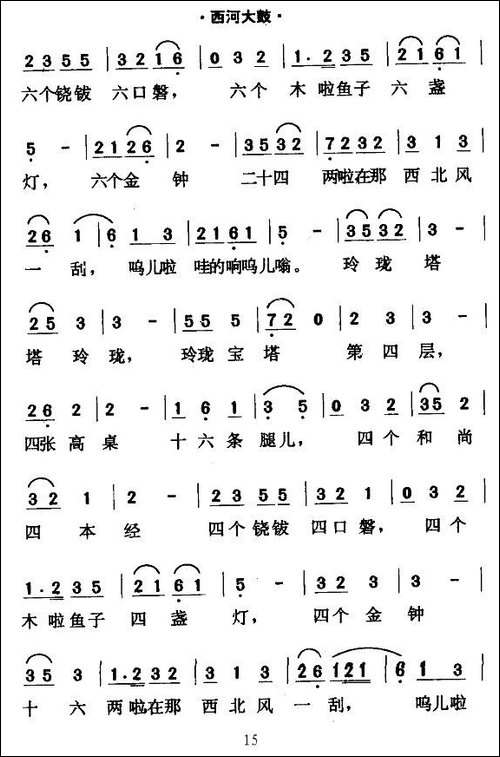 ·西河大鼓·
2 3 5 5 | 3 2 1 6 | 0 3 2 | 1· 2 3 5 | 2 1 6 1 |
六个铙钹 六口磐， 六个 木啦鱼子 六盏
5 - | 2 1 2 6 | 2 - | 3 5 3 2 | 7 2 3 2 | 3 1 3 |
灯， 六个金 钟 二十四 两啦在那 西北风
2 6 1 | 6 1 3 | 2 1 6 1 | 5 - | 3 5 3 2 | 3 - |
一 刮， 呜儿啦 哇的响呜儿嗡。 玲珑 塔
2 5 3 | 3 - | 5 5 5 | 7 2 0 | 2 3 | 3 - |
塔 玲 珑， 玲珑 宝 塔 第 四 层，
2 6 2 | 2 - | 1 6 1 | 3 5 | 0 3 2 | 3 5 2 |
四张 高 桌 十 六 条 腿 儿， 四 个 和 尚
3 2 1 | 2 - | 2 3 5 5 | 3 2 1 | 0 3 2 |
四 本 经 四个铙钹 四口磐， 四 个
1· 2 3 5 | 2 1 6 1 | 5 - | 3 2 3 | 3 - |
木 啦鱼子 四 盏 灯， 四 个 金 钟
3 5 3 | 1· 2 3 2 | 3 1 3 | 2 6 1 2 1 | 6 1 3 |
十 六 两啦在那 西 北 风 一 刮， 呜儿啦
15